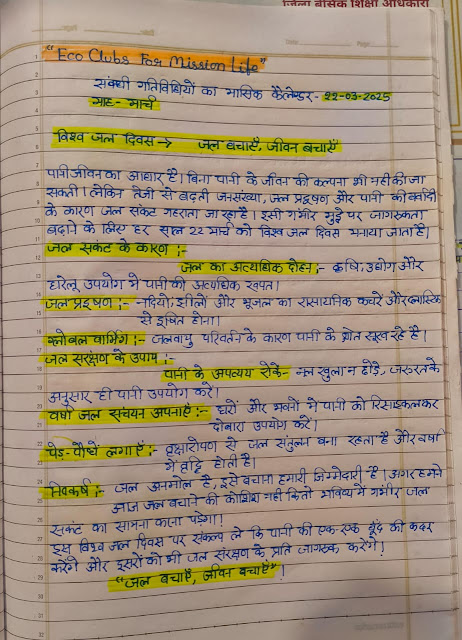 जिला बेसिक शिक्षा अधिकारी
"Eco Clubs For Mission Life"
संबंधी गतिविधियों का मासिक कैलेण्डर - 22-03-2025
माह - मार्च
विश्व जल दिवस → जल बचाएँ, जीवन बचाएँ
पानी जीवन का आधार है। बिना पानी के जीवन की कल्पना भी नहीं की जा
सकती। लेकिन तेजी से बढ़ती जनसंख्या, जल प्रदूषण और पानी की बर्बादी
के कारण जल संकट गहराता जा रहा है। इसी गंभीर मुद्दे पर जागरूकता
बढ़ाने के लिए हर साल 22 मार्च को विश्व जल दिवस मनाया जाता है।
जल संकट के कारण :-
जल का अत्यधिक दोहन :- कृषि, उद्योग और
घरेलू उपयोग में पानी की अत्यधिक खपत।
जल प्रदूषण :- नदियों, झीलों और भूजल का रासायनिक कचरे और प्लास्टिक
से दूषित होना।
ग्लोबल वार्मिंग :- जलवायु परिवर्तन के कारण पानी के स्रोत सूख रहे है।
जल संरक्षण के उपाय :-
पानी के अपव्यय रोके - नल खुला न छोड़े, जरूरत के
अनुसार ही पानी उपयोग करें।
वर्षा जल संचयन अपनाएँ :- घरों और भवनों में पानी को रिसाइकल कर
दोबारा उपयोग करें।
पेड़-पौधे लगाएँ :- वृक्षारोपण से जल संतुलन बना रहता है और वर्षा
में वृद्धि होती है।
निष्कर्ष :- जल अनमोल है, इसे बचाना हमारी जिम्मेदारी है। अगर हमने
आज जल बचाने की कोशिश नहीं की तो भविष्य में गंभीर जल
सकंट का सामना करना पड़ेगा।
इस विश्व जल दिवस पर संकल्प ले कि पानी की एक-एक बूंद की कदर
करेंगे और दूसरों को भी जल संरक्षण के प्रति जागरूक करेंगे!
"जल बचाएँ, जीवन बचाएँ"।